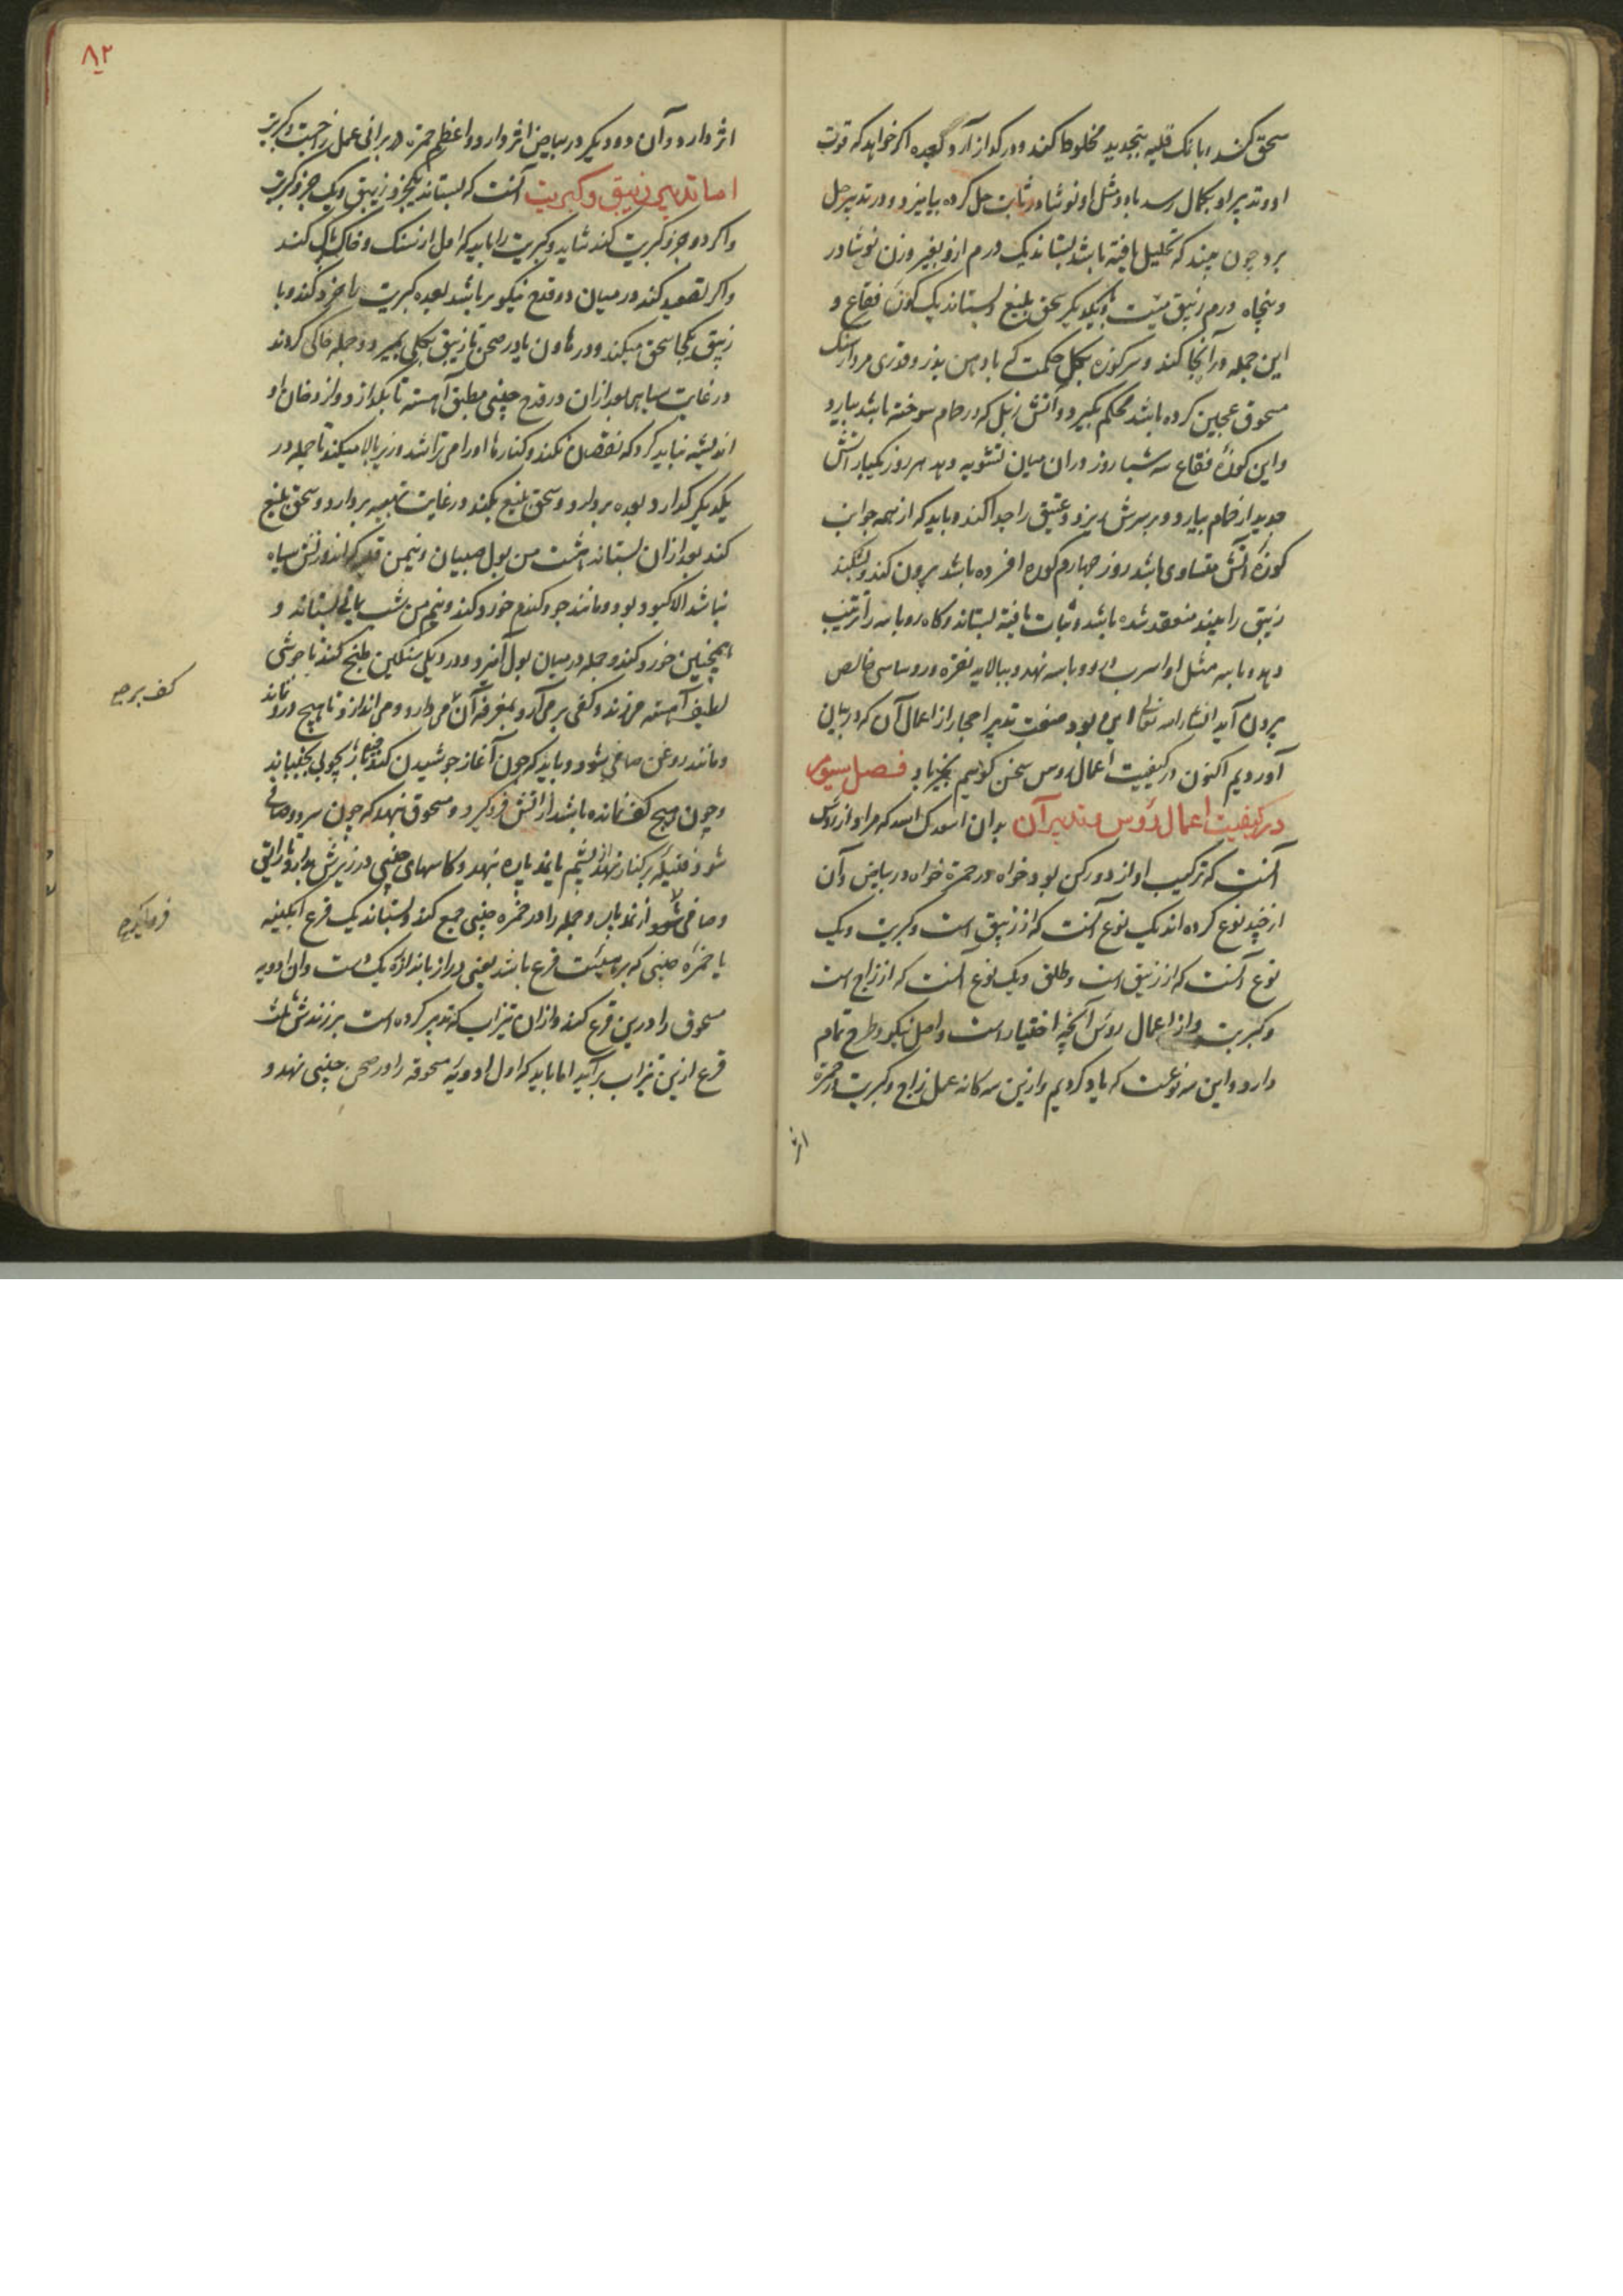 سحق کند و با نمک قلیه بتجدید مخلوط کند و در گداز آرد بعده اکر خواهد که قوت
او و تدبیر او بکمال رسد باو مثل او نوشادر ثابت حل کرده بیامیزد و در تدبیر حل
برد چون بیند که تحلیل یافته باشد بستاند یک درم ازو بغیر وزن نوشادر
و پنجاه درم زیبق میت با یکدیکر سحق بلیغ و بستاند یک کوزه فقاع و
این جمله در آنجا کند و سر کوزه بکل حکمت که با دهن بزر و قدری مردارسنک
مسحوق عجین کرده باشد محکم بگیرد و آتش زبل که در حمام سوخته باشد بیارد
و این کوزه فقاع سه شبا روز در ان میان تشویه دهد هر روز یکبار آتش
جدید از حمام بیارد و بر سرش ریزد و عتیق را جدا کند و باید که از همه جوانب
کوزه آتش متساوی باشد روز چهارم کوره افسرده باشد برون کند و بشکند
زیبق را بیند منعقد شده باشد و ثبات یافته بستاند و کاه روباسه را ترتیب
دهد و با سه مثل او اسرب در روباسه نهد و ببالاید نقره رصاصی خالص
برون آید انشاء الله تعالی این بود صفت تدبیر احجار از اعمال آن که در بیان
آوردیم اکنون در کیفیت اعمال رؤس سخن کوئیم بخیر باد فصل سیوم
در کیفیت اعمال رؤس و تدبیر آن بدان اسعدک الله که مراد از رؤس
آنست که ترکیب او از دو رکن بود خواه در حمرة خواه در بیاض و آن
از چند نوع کرده اند یک نوع آنست که از زیبق است و کبریت و یک
نوع آنست که از زیبق است و طلق و یک نوع آنست که از زاج است
و کبریت و از اعمال رؤس آنچه اختیار است و اصل نیکو و طرح تمام
دارد و این سه نوعست که یاد کردیم و ازین سه کانه عمل زاج و کبریت در حمرة
اثر
۸۲
اثر دارد و آن دو دیکر در بیاض اثر دارد و اعظم حمرة در برانی عمل زاجست و کبریت
اما تدبیر زیبق و کبریت آنست که بستاند یکجزو زیبق و یک جزو کبریت
و اکر دو جزو کبریت کند شاید و کبریت را باید که اول از سنک و خاک پاک کند
و اکر تصعید کند در میان دو قدح نیکوتر باشد بعده کبریت را خرد کند و با
زیبق یکجا سحق میکند و در هاون یا در صحن تا زیبق بکلی بمیرد و جمله خاکی کردند
در غایت سیاهی بعد ازان در قدح چینی مطبق آهسته تا بکدازد و از دخان او
اندیشه نباید کرد که نقصان نکند و کنارها او را می تراشد و زیر بالا میکند تا جمله در
یکدیکر کدازد و بعده بردارد و سحق بلیغ بکند در غایت تهبیه بردارد و سحق بلیغ
کند بعد ازان بستاند هشت من بول صبیان و نیم من قلیه که اندرونش سیاه
نباشد الا کبود بود و مانند جو و کندم خورد کند و نیم من شب یمانی بستاند و
همچنین خورد کند و جمله در میان بول آمیزد و در دیکی سنکین طبخ کند تا جوشی
لطیف آهسته میزند و کفی بر می آرد بمغرفه آن می دارد و می اندازد تا هیچ درد نماند
و مانند روغن صافی شود و باید که چون آغاز جوشیدن کند بچوبی بجنباند
و چون هیچ کف نمانده باشد از آتش فرو کیرد و مسحوق نهد که چون سرد و صافی
شود فتیله بر کنار نهد از پشم یا پنبه پاره نهد و کاسهای چینی در زیرش بدارد تا رایق
و صافی شود از نم پاره و جمله را در خمره چینی جمع کند و بستاند یک قرع آبکینه
یا خمره چینی که بر هیئت قرع باشد یعنی دراز باندازه یک دست و آن ادویه
مسحوق را درین قرع کند و ازان تیزاب که تدبیر کرده است برزند ثلث
قرع ازین تیزاب برآید اما باید که اول ادویه مسحوقه را در صحن چینی نهد و